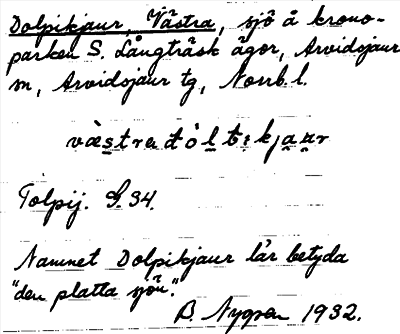 Dolpikjaur, Västra, sjö å krono-
parken S. Långträsk ägor, Arvidsjaur
sn, Arvidsjaur tg, Norrb. l.
Tolpij. G. 34.
Namnet Dolpikjaur lär betyda
"den platta sjön".
B. Nygren 1932.